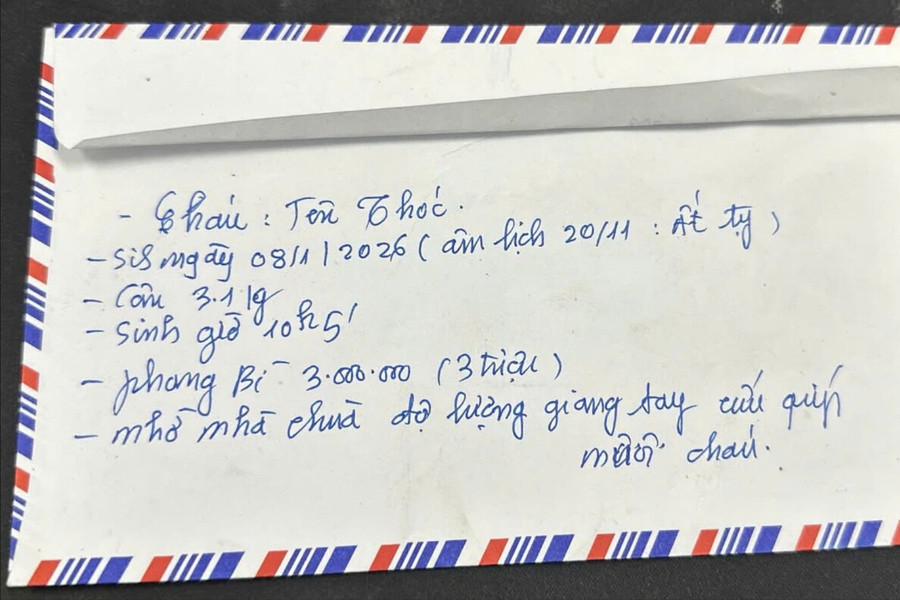 - Cháu: Tên Thóc.
- Sis ngày 08/1/2026 (âm lịch 20/11: Ất tỵ)
- Cân 3.1 kg
- Sinh giờ 10h5'
- phong Bì 3.000.000 (3 triệu)
- nhờ nhà chùa độ lượng giang tay cứu giúp
nuôi cháu.